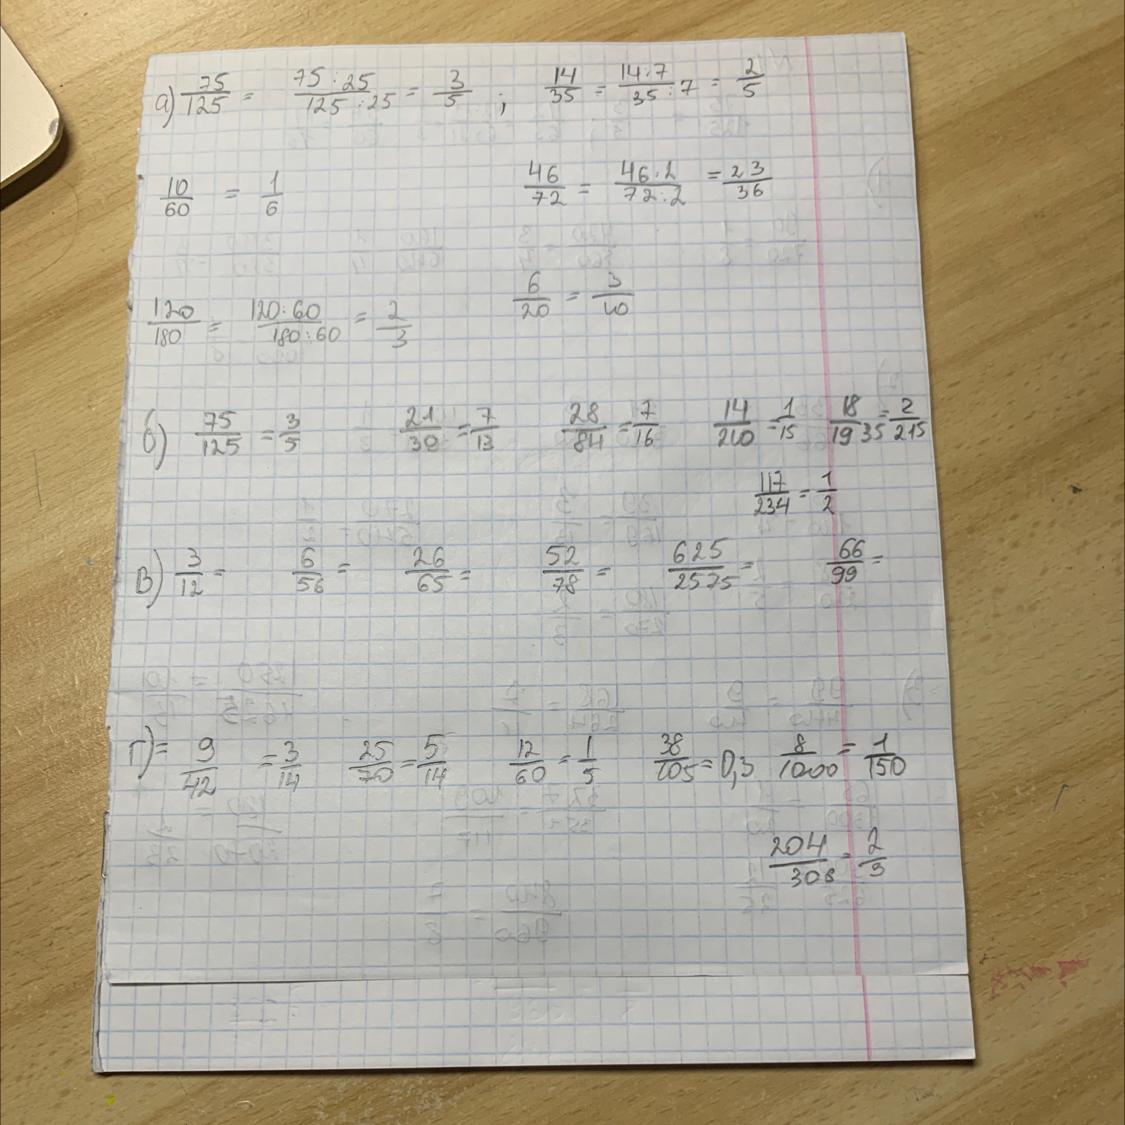 а) 75/125 = 75:25/125:25 = 3/5 ; 14/35 = 14:7/35:7 = 2/5
10/60 = 1/6 46/72 = 46:2/72:2 = 23/36
6/20 = 3/10
120/180 = 120:60/180:60 = 2/3
б) 75/125 = 3/5 21/39 = 7/13 28/84 = 7/16 14/210 = 1/15 18/1935 = 2/215
117/234 = 1/2
В) 3/12 = 6/56 = 26/65 = 52/78 = 625/2575 = 66/99 =
Г) = 9/42 = 3/14 25/70 = 5/14 12/60 = 1/5 38/105 = 0,3 8/1000 = 1/150
204/308 = 2/3